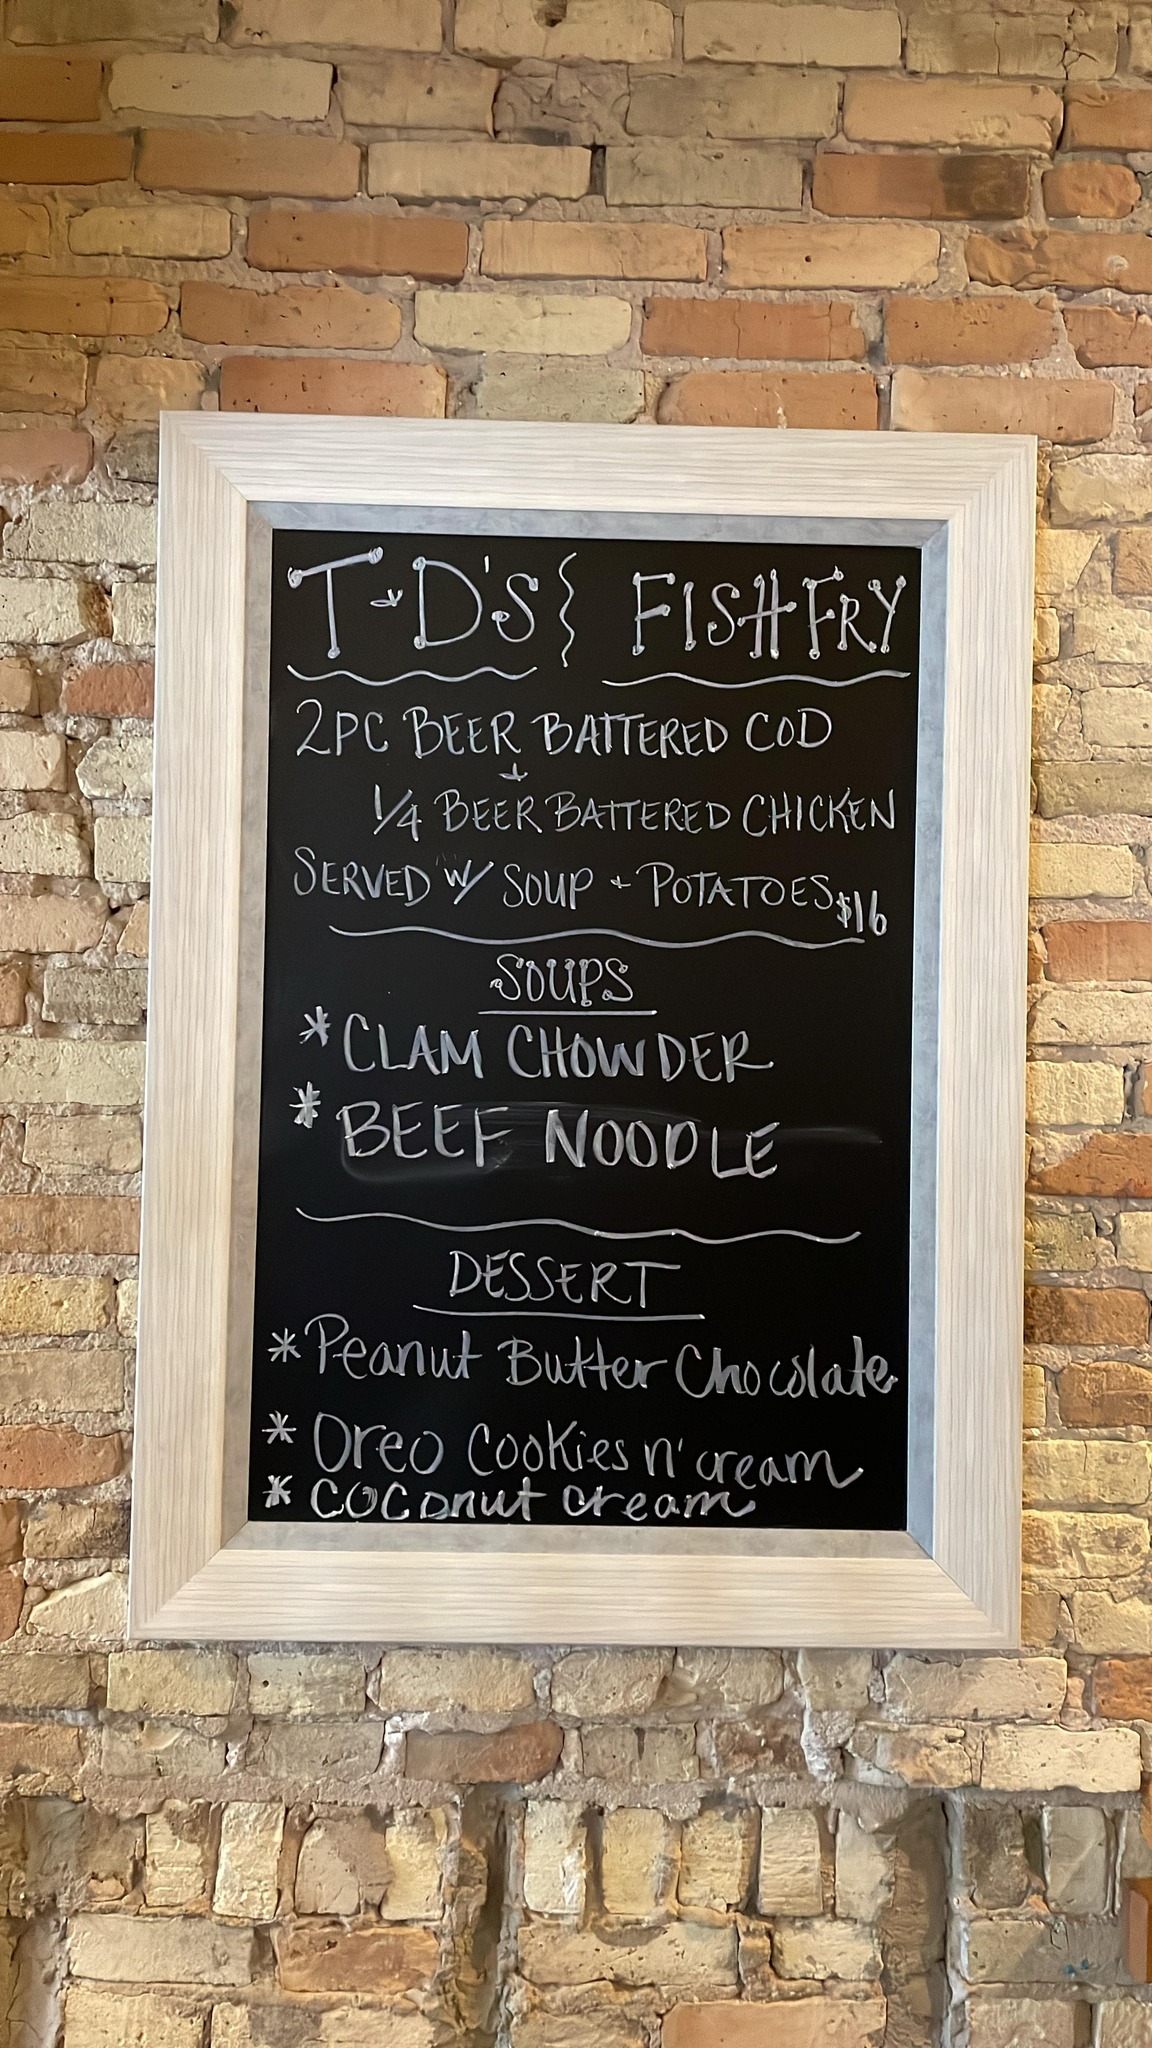 T+D'S FISH FRY
2PC BEER BATTERED COD
+
1/4 BEER BATTERED CHICKEN
SERVED W/ SOUP + POTATOES $16
SOUPS
* CLAM CHOWDER
* BEEF NOODLE
DESSERT
* Peanut Butter Chocolate
* Oreo Cookies n' cream
* Coconut cream